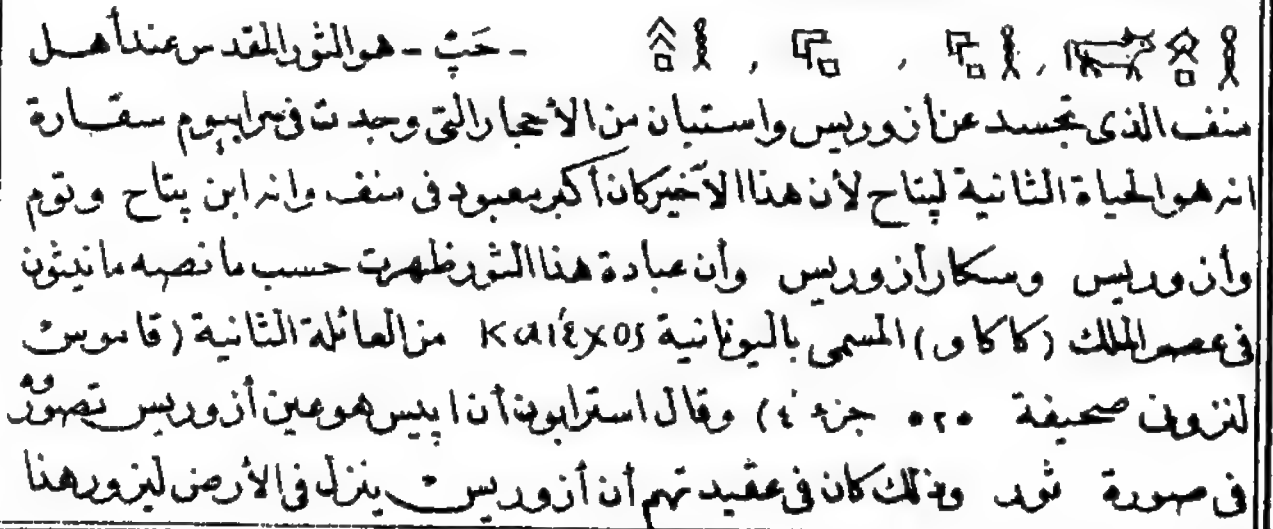 - حَپْ - هو الثور المقدس عند أهل
منف الذى تجسد عن أزوريس واستبان من الأحجار التى وجدت فى سرابيوم سقارة
انه هو الحياة الثانية لپتاح لأن هذا الأخير كان أكبر معبود فى منف وانه ابن پتاح وتوم
وأزوريس وسكار أزوريس وأن عبادة هذا الثور ظهرت حسب ما نصبه مانيثون
فى عصر الملك (كاكاو) المسمى باليونانية Καιέχος من العائلة الثانية (قاموس
لنزون صحيفة ٥٢٥ جزء ٤) وقال استرابون أن اپيس هو عين أزوريس تصوّروه
فى صورة ثور وذلك كان فى عقيدتهم أن أزوريس ينزل فى الأرض ليزور هذا